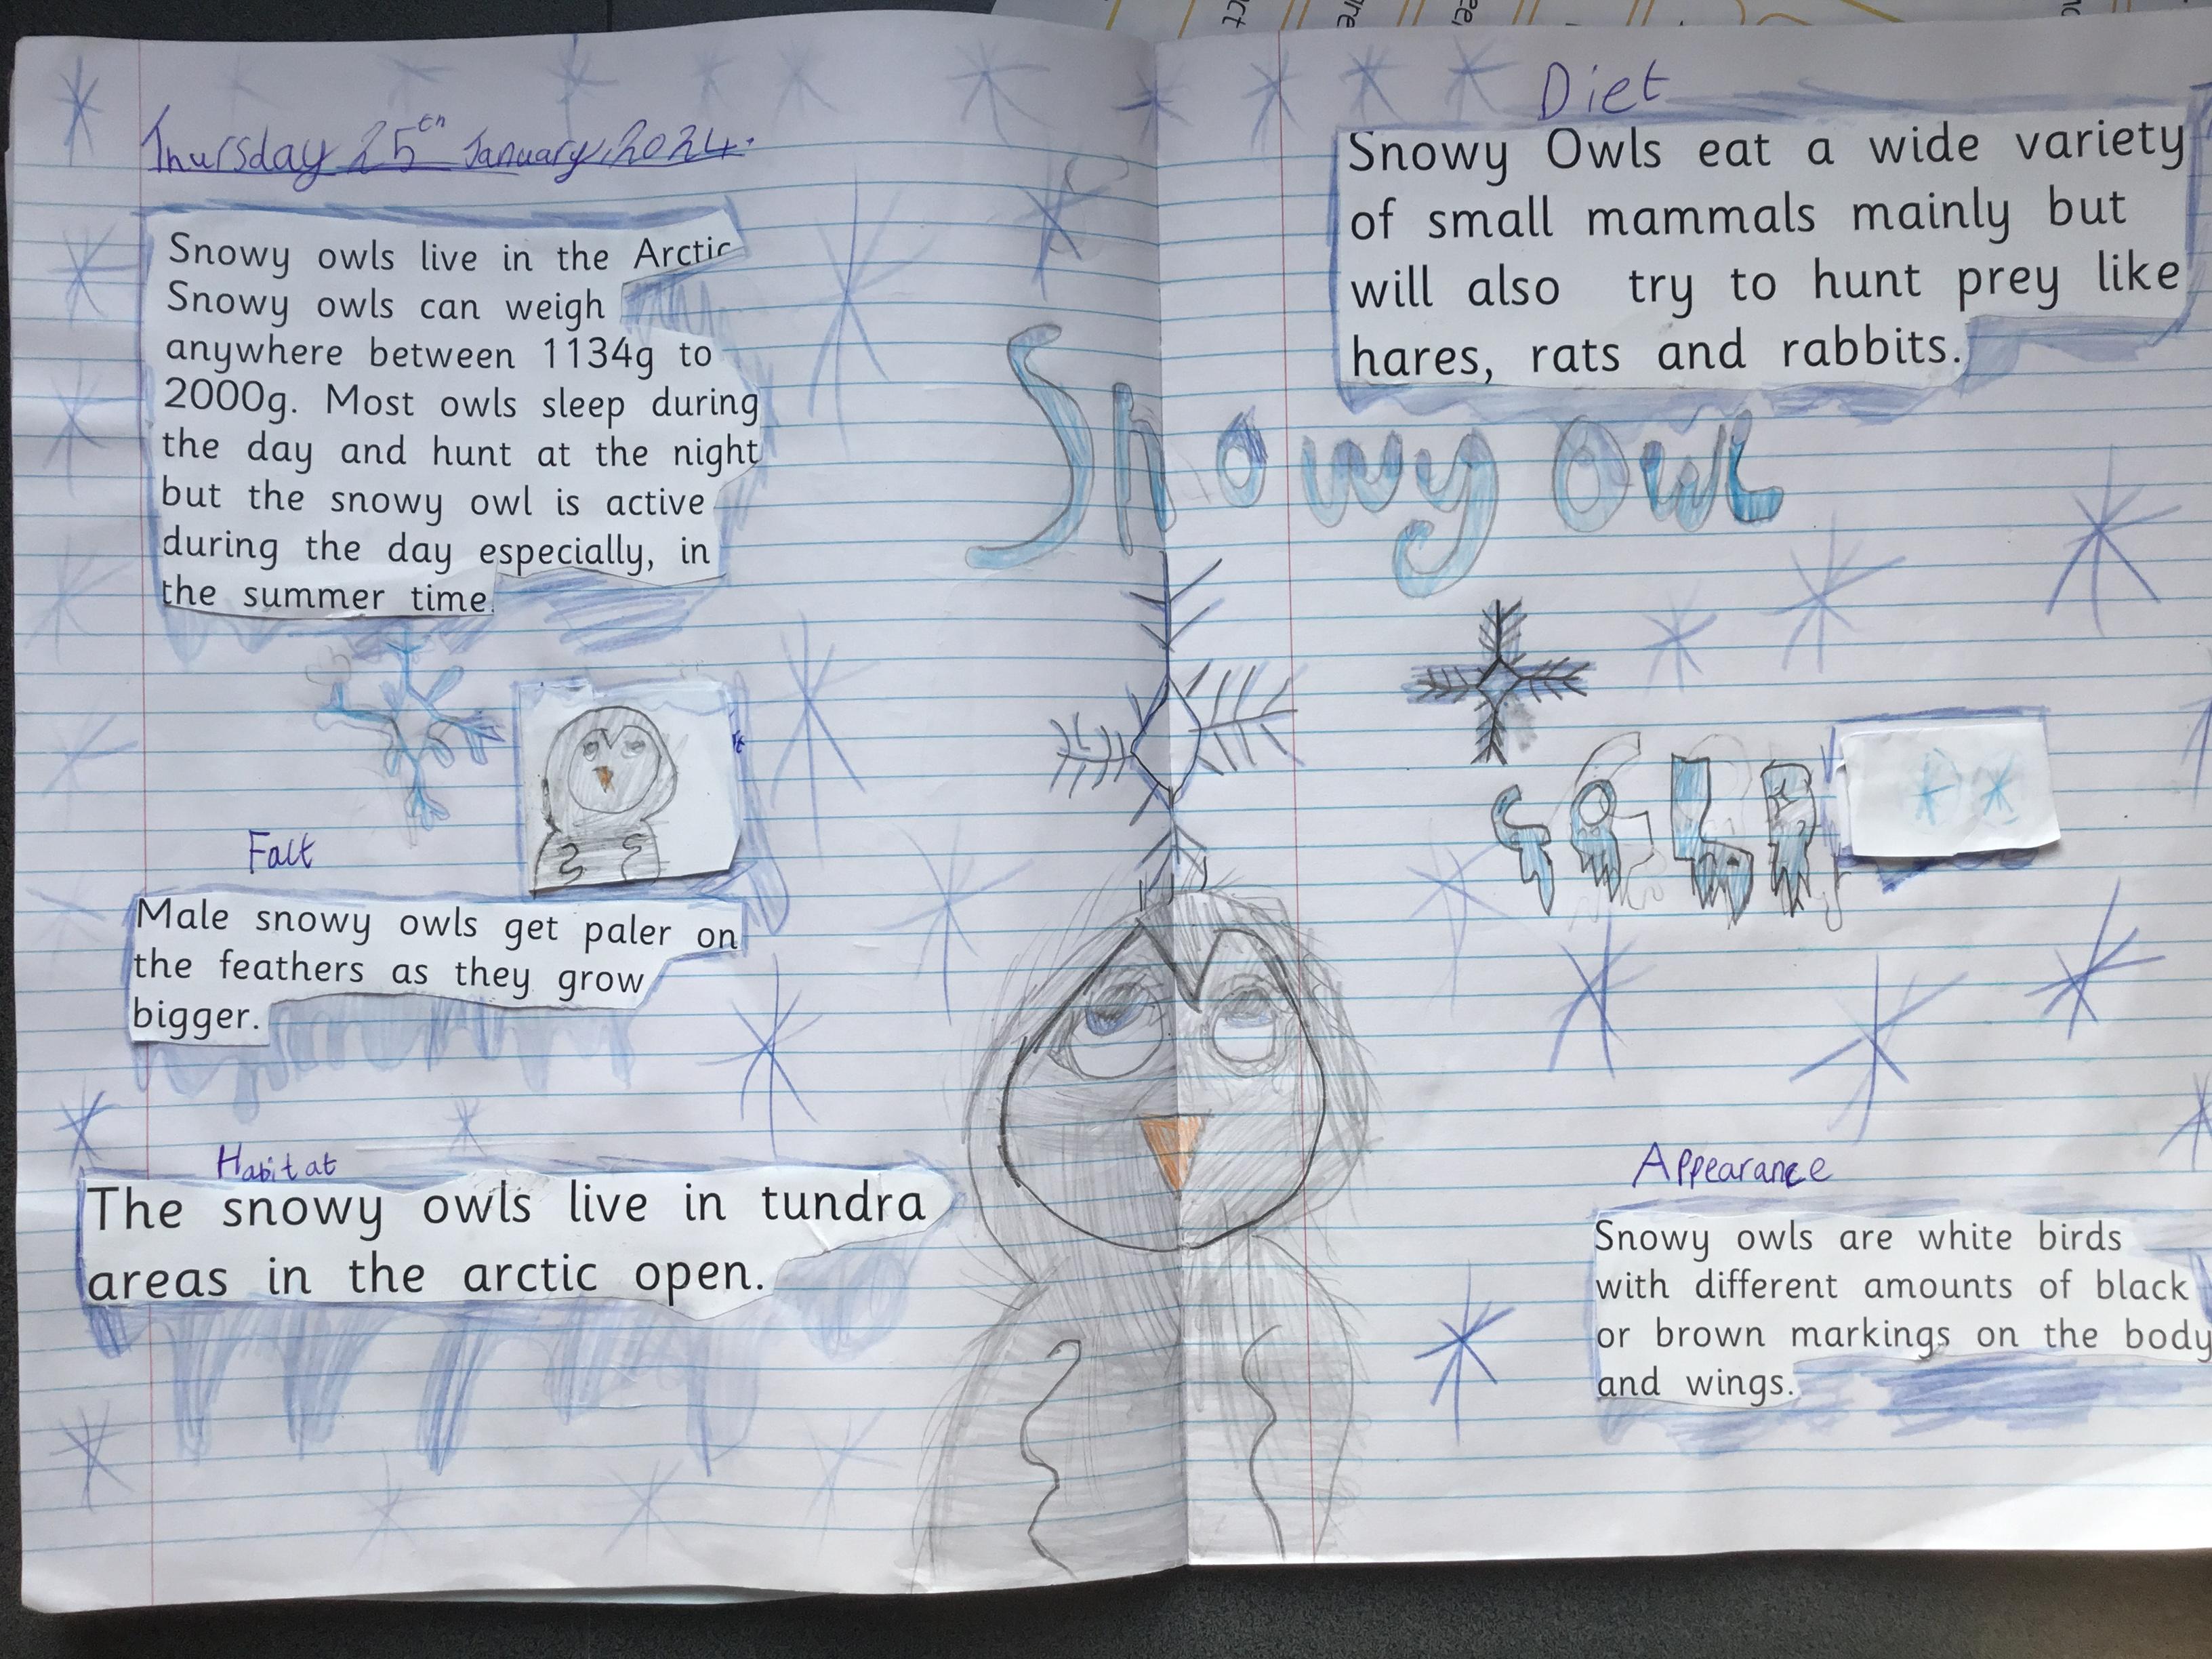 Thursday 25th January, 2024.
Snowy owls live in the Arctic
Snowy owls can weigh
anywhere between 1134g to
2000g. Most owls sleep during
the day and hunt at the night
but the snowy owl is active
during the day especially, in
the summer time.
Fact
Male snowy owls get paler on
the feathers as they grow
bigger.
Habitat
The snowy owls live in tundra
areas in the arctic open.
Snowy Owl
Diet
Snowy Owls eat a wide variety
of small mammals mainly but
will also try to hunt prey like
hares, rats and rabbits.
COLD
Appearance
Snowy owls are white birds
with different amounts of black
or brown markings on the body
and wings.